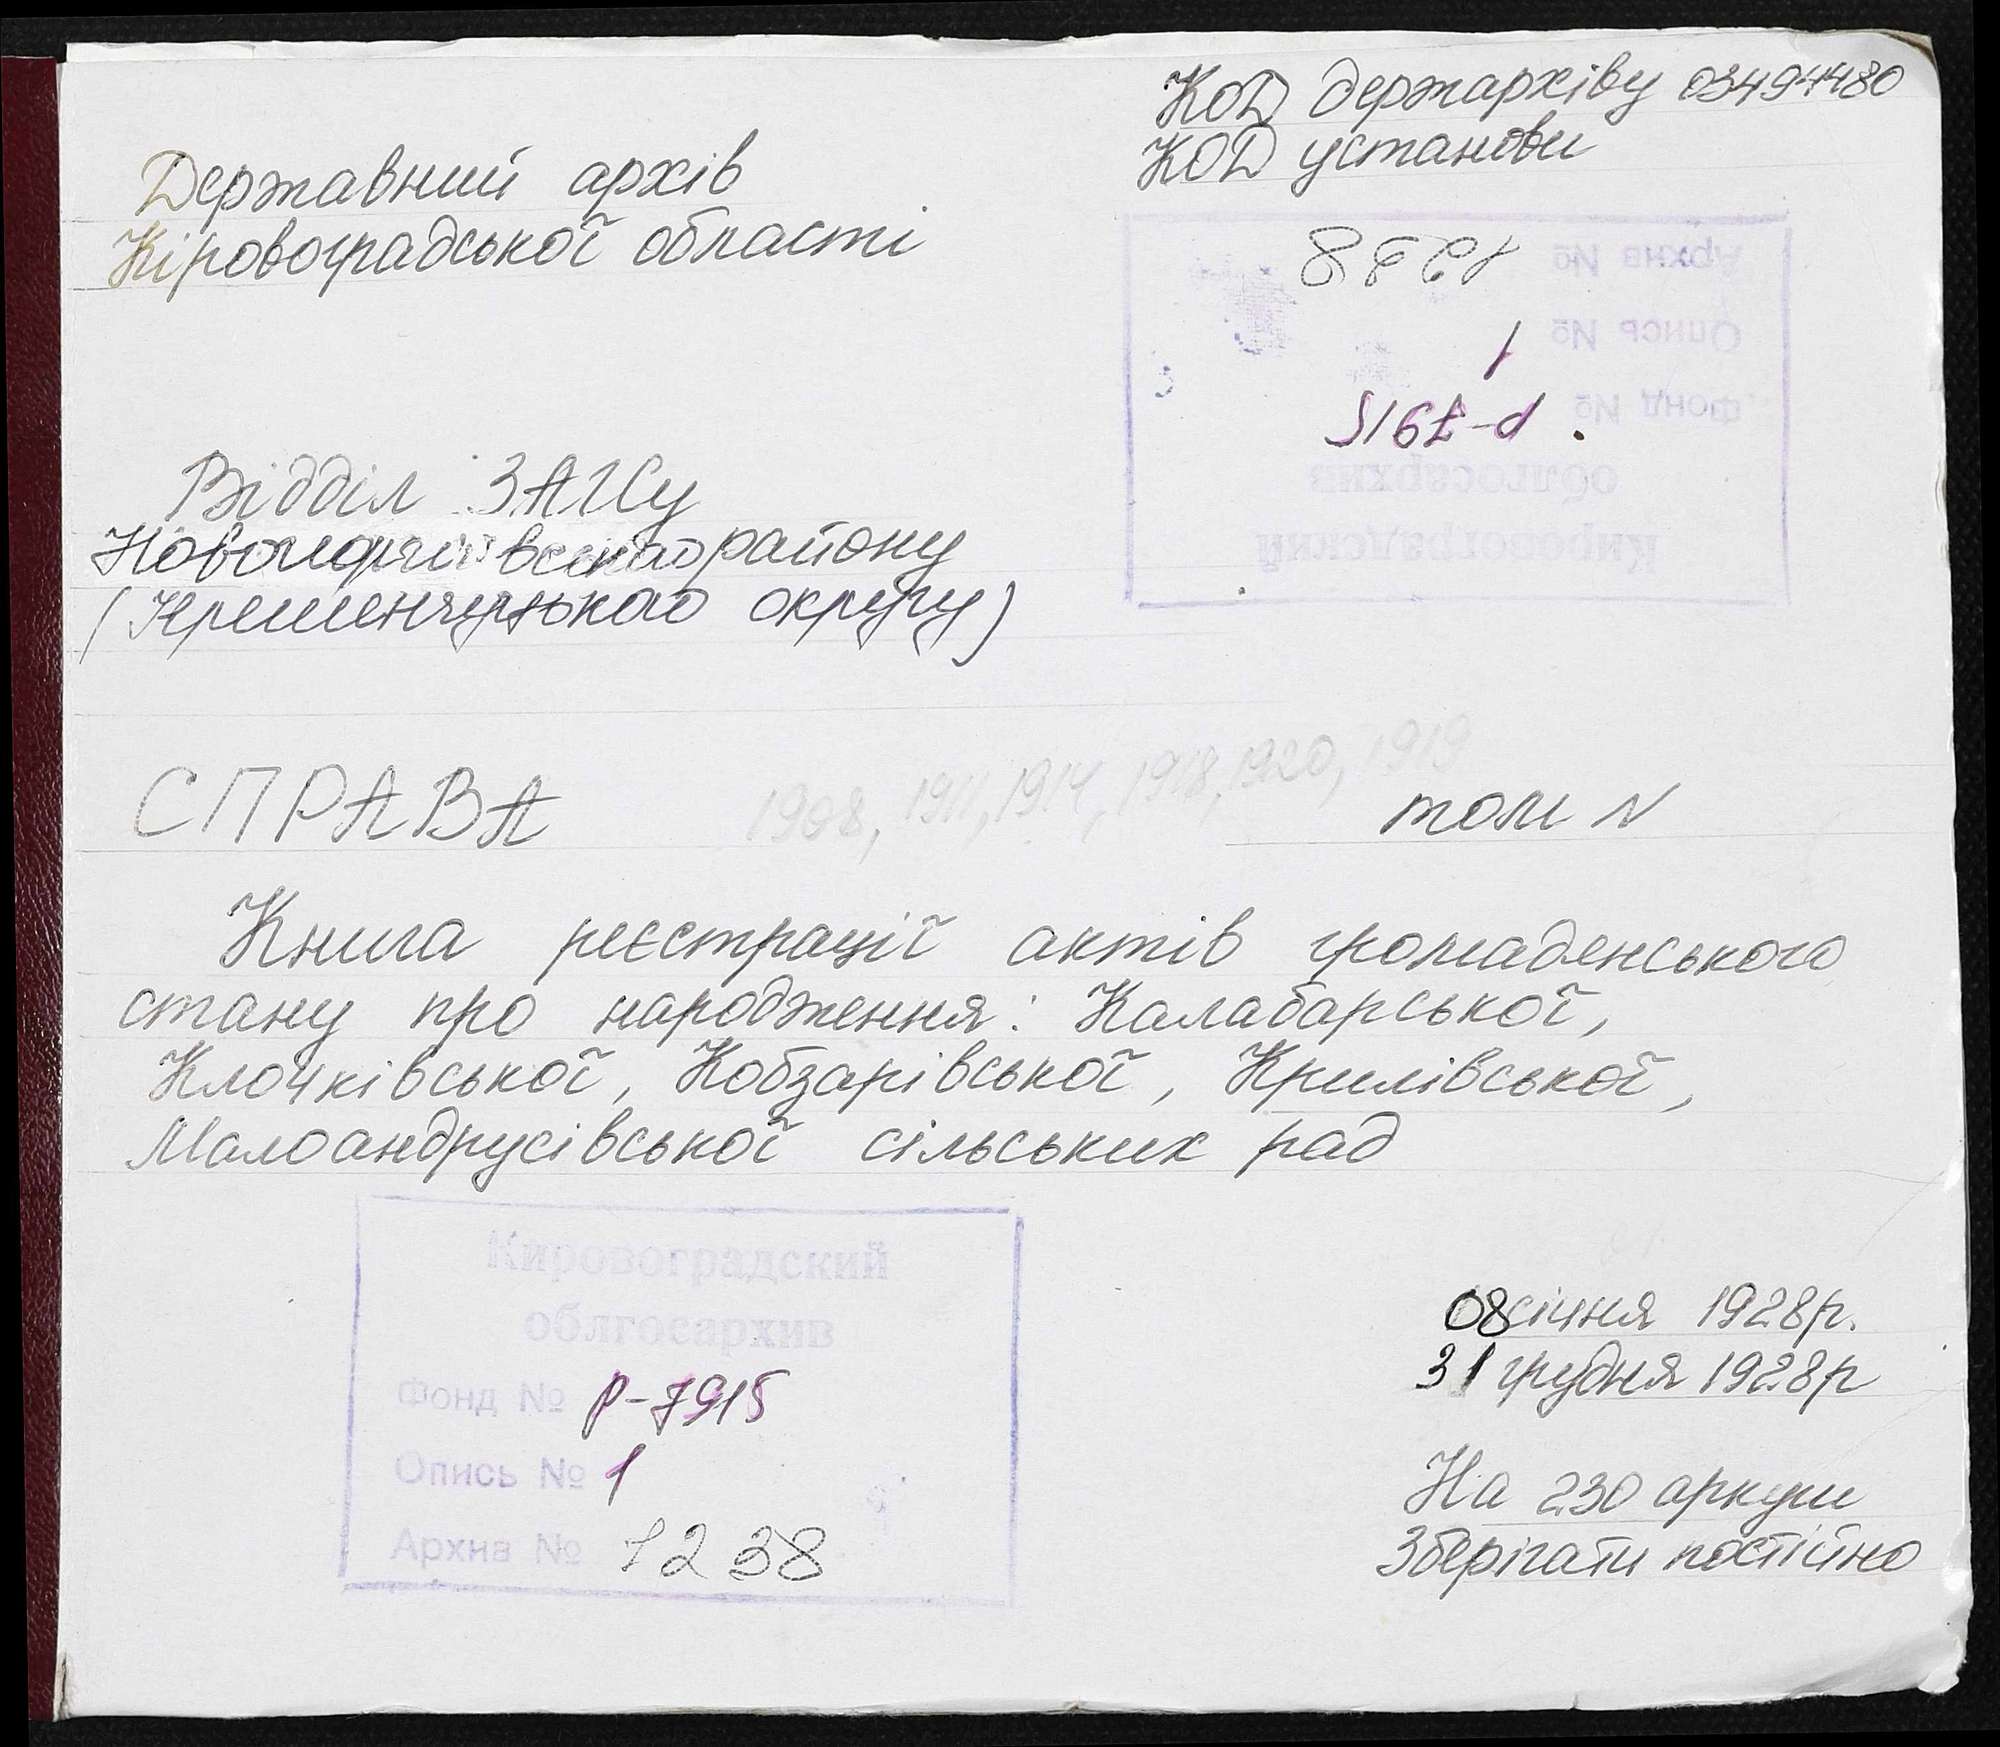 Код держархіву 03494480
Код установи
Державний архів
Кіровоградської області
Кировоградский
облгосархив
Фонд № Р-7915
Опись № 1
Архив № 1238
Відділ ЗАГСу
району
(Кременчуцького округу)
1908, 1911, 1914, 1918, 1920, 1919
СПРАВА том N
Книга реєстрації актів громадянського
стану про народження: Калабарської,
Клочківської, Кобзарівської, Крилівської,
Малоандрусівської сільських рад
Кировоградский
облгосархив
Фонд № Р-7915
Опись № 1
Архив № 1238
08 січня 1928р.
31 грудня 1928р
На 230 аркуш
Зберігати постійно